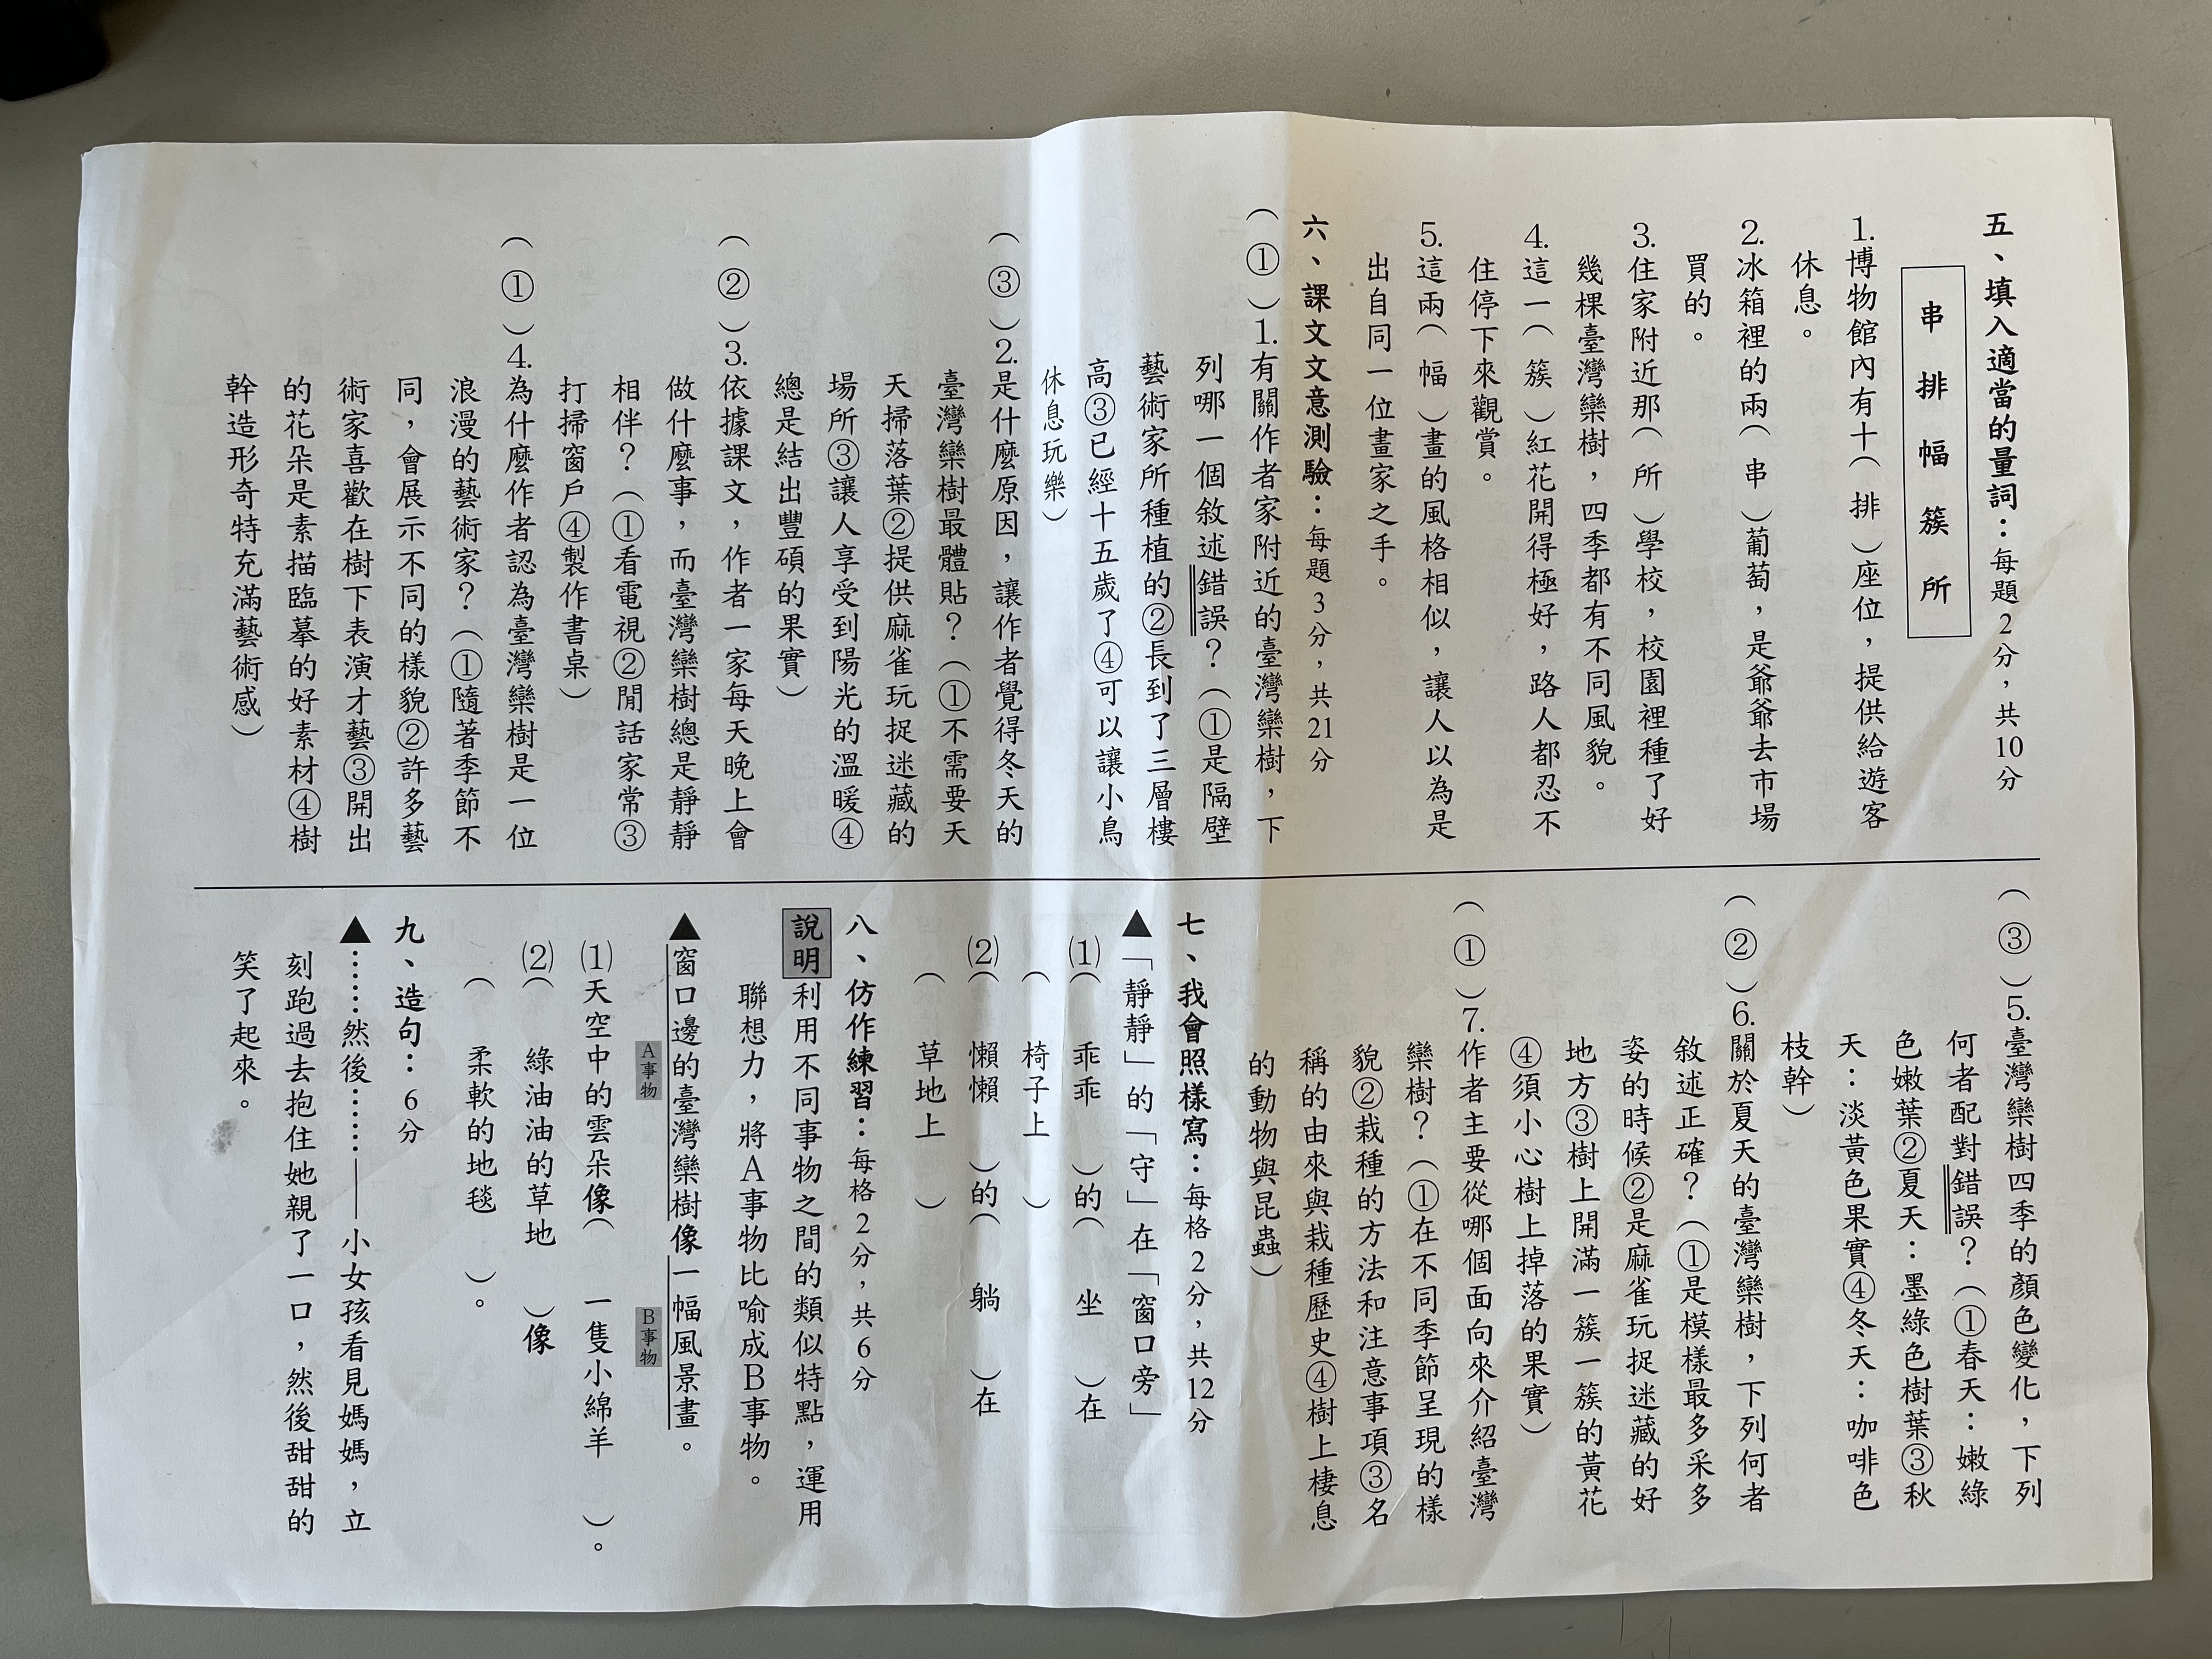 五、填入適當的量詞：每題2分，共10分
串 排 幅 簇 所
1.博物館內有十（ 排 ）座位，提供給遊客
休息。
2.冰箱裡的兩（ 串 ）葡萄，是爺爺去市場
買的。
3.住家附近那（ 所 ）學校，校園裡種了好
幾棵臺灣欒樹，四季都有不同風貌。
4.這一（ 簇 ）紅花開得極好，路人都忍不
住停下來觀賞。
5.這兩（ 幅 ）畫的風格相似，讓人以為是
出自同一位畫家之手。
六、課文文意測驗：每題3分，共21分
（ ① ）1.有關作者家附近的臺灣欒樹，下
列哪一個敘述錯誤？（①是隔壁
藝術家所種植的②長到了三層樓
高③已經十五歲了④可以讓小鳥
休息玩樂）
（ ③ ）2.是什麼原因，讓作者覺得冬天的
臺灣欒樹最體貼？（①不需要天
天掃落葉②提供麻雀玩捉迷藏的
場所③讓人享受到陽光的溫暖④
總是結出豐碩的果實）
（ ② ）3.依據課文，作者一家每天晚上會
做什麼事，而臺灣欒樹總是靜靜
相伴？（①看電視②閒話家常③
打掃窗戶④製作書桌）
（ ① ）4.為什麼作者認為臺灣欒樹是一位
浪漫的藝術家？（①隨著季節不
同，會展示不同的樣貌②許多藝
術家喜歡在樹下表演才藝③開出
的花朵是素描臨摹的好素材④樹
幹造形奇特充滿藝術感）
（ ③ ）5.臺灣欒樹四季的顏色變化，下列
何者配對錯誤？（①春天：嫩綠
色嫩葉②夏天：墨綠色樹葉③秋
天：淡黃色果實④冬天：咖啡色
枝幹）
（ ② ）6.關於夏天的臺灣欒樹，下列何者
敘述正確？（①是模樣最多采多
姿的時候②是麻雀玩捉迷藏的好
地方③樹上開滿一簇一簇的黃花
④須小心樹上掉落的果實）
（ ① ）7.作者主要從哪個面向來介紹臺灣
欒樹？（①在不同季節呈現的樣
貌②栽種的方法和注意事項③名
稱的由來與栽種歷史④樹上棲息
的動物與昆蟲）
七、我會照樣寫：每格2分，共12分
▲「靜靜」的「守」在「窗口旁」
⑴（ 乖乖 ）的（ 坐 ）在
（ 椅子上 ）
⑵（ 懶懶 ）的（ 躺 ）在
（ 草地上 ）
八、仿作練習：每格2分，共6分
說明 利用不同事物之間的類似特點，運用
聯想力，將A事物比喻成B事物。
▲窗口邊的臺灣欒樹像一幅風景畫。
A事物 B事物
⑴天空中的雲朵像（ 一隻小綿羊 ）。
⑵（ 綠油油的草地 ）像
（ 柔軟的地毯 ）。
九、造句：6分
▲……然後……——小女孩看見媽媽，立
刻跑過去抱住她親了一口，然後甜甜的
笑了起來。